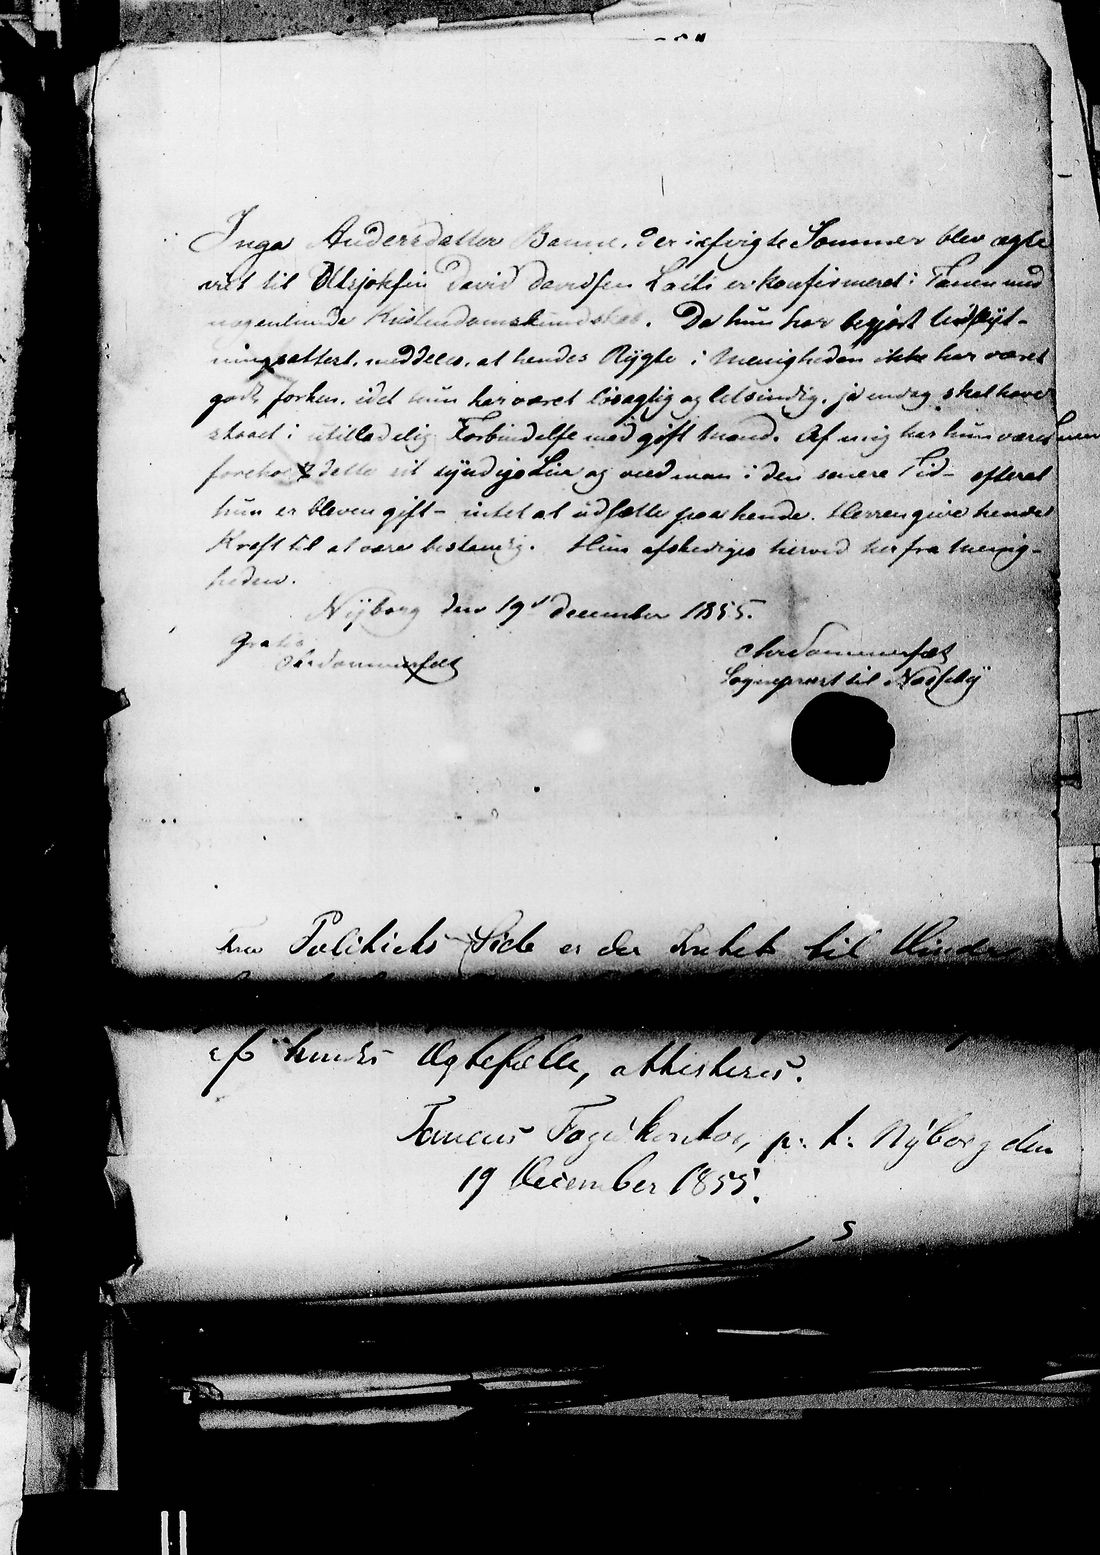 Inga Andersdatter Banne, der isfivgte Sommer blev ægte
viet til Utsjokfin David Davidsen Laiti er konfirmeret i Tanen med
nogenlunde Kristendomskundskab. Da hun har begjært Udflyt-
ningsattest, meddeles, at hendes Rygte i Menigheden ikke har været
godt forhen, idet hun har været løsagtig og letsindig, ja endog skal have
staaet i utilladelig Forbindelse med gift Mand. Af mig har hun været
foreholdt dette sit syndige Liv og veed man i den senere Tid - efterat
hun er bleven gift - intet at udsætte paa hende. Herren give hende
Kraft til at være bestandig. Hun afskediges herved her fra Menig-
heden.
Nÿborg den 19d December 1855.
Gratis
Chr Sommerfelt
Chr Sommerfelt
Sogneprest til Nessebÿ
Fra Politiets Side er der Intet til Hinder
af hendes Ægtefælle, attesteres.
Tanens Fogdkontor, p. t. Nÿborg den
19 December 1855.